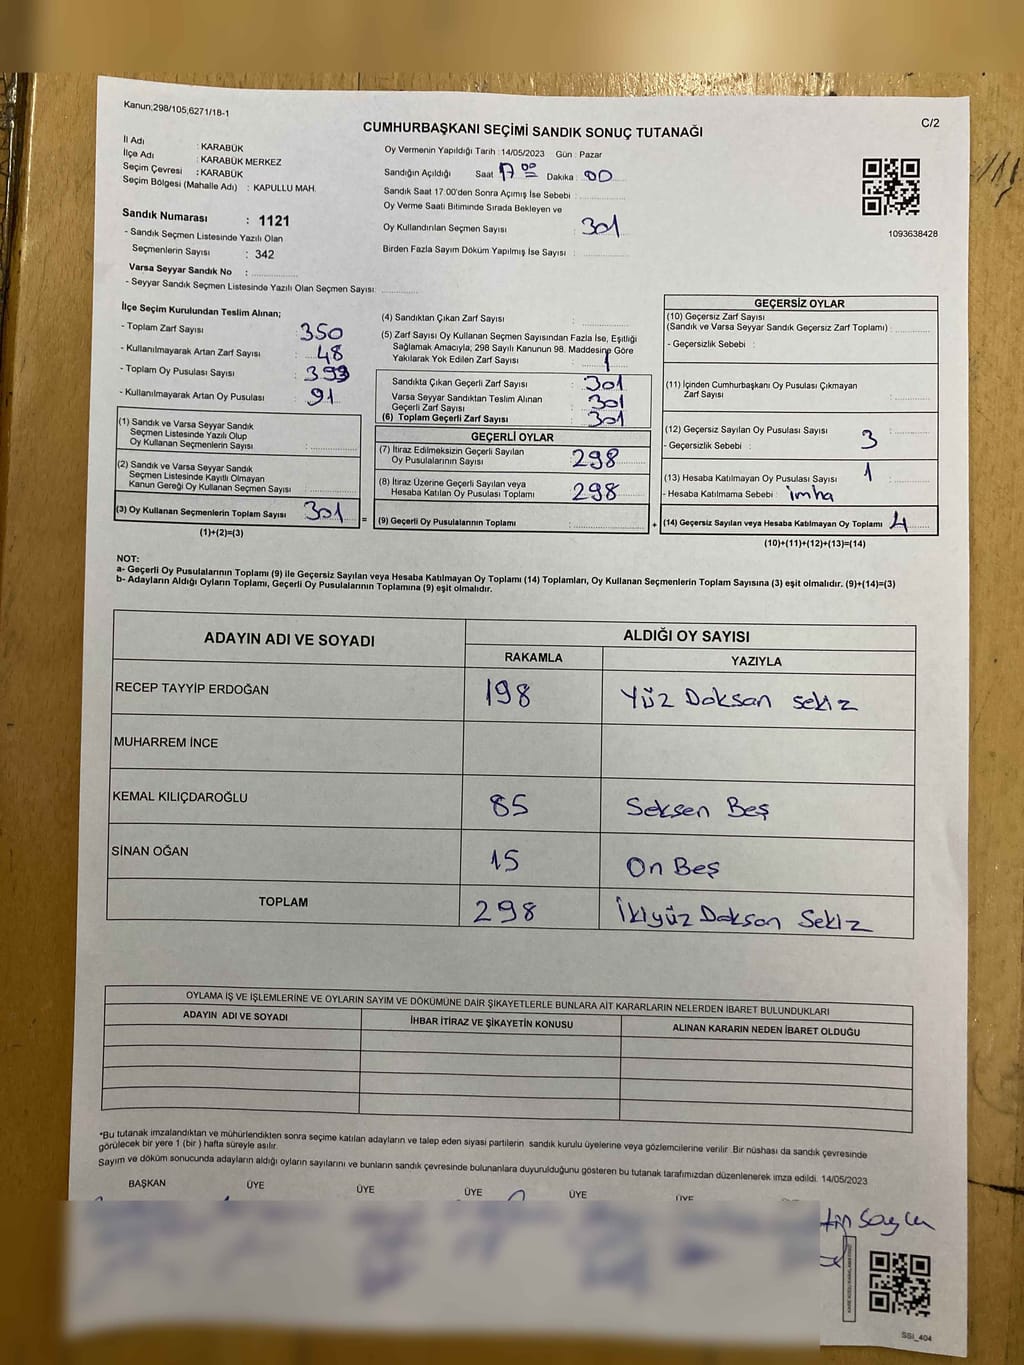 Kanun:298/105,6271/18-1
C/2
CUMHURBAŞKANI SEÇİMİ SANDIK SONUÇ TUTANAĞI
İl Adı : KARABÜK
İlçe Adı : KARABÜK MERKEZ
Seçim Çevresi : KARABÜK
Seçim Bölgesi (Mahalle Adı) : KAPULLU MAH.
Sandık Numarası : 1121
- Sandık Seçmen Listesinde Yazılı Olan
Seçmenlerin Sayısı : 342
Varsa Seyyar Sandık No :
- Seyyar Sandık Seçmen Listesinde Yazılı Olan Seçmen Sayısı:
Oy Vermenin Yapıldığı Tarih : 14/05/2023 Gün : Pazar
Sandığın Açıldığı Saat 17 00 Dakika : 00
Sandık Saat 17.00'den Sonra Açımış İse Sebebi :
Oy Verme Saati Bitiminde Sırada Bekleyen ve
Oy Kullandırılan Seçmen Sayısı : 301
Birden Fazla Sayım Döküm Yapılmış İse Sayısı :
1093638428
İlçe Seçim Kurulundan Teslim Alınan;
- Toplam Zarf Sayısı : 350
- Kullanılmayarak Artan Zarf Sayısı : 48
- Toplam Oy Pusulası Sayısı : 393
- Kullanılmayarak Artan Oy Pusulası : 91
(1) Sandık ve Varsa Seyyar Sandık
Seçmen Listesinde Yazılı Olup
Oy Kullanan Seçmenlerin Sayısı :
(2) Sandık ve Varsa Seyyar Sandık
Seçmen Listesinde Kayıtlı Olmayan
Kanun Gereği Oy Kullanan Seçmen Sayısı :
(3) Oy Kullanan Seçmenlerin Toplam Sayısı : 301 =
(1)+(2)=(3)
(4) Sandıktan Çıkan Zarf Sayısı :
(5) Zarf Sayısı Oy Kullanan Seçmen Sayısından Fazla İse, Eşitliği
Sağlamak Amacıyla, 298 Sayılı Kanunun 98. Maddesine Göre
Yakılarak Yok Edilen Zarf Sayısı : 1
Sandıkta Çıkan Geçerli Zarf Sayısı : 301
Varsa Seyyar Sandıktan Teslim Alınan
Geçerli Zarf Sayısı : 301
(6) Toplam Geçerli Zarf Sayısı : 301
GEÇERLİ OYLAR
(7) İtiraz Edilmeksizin Geçerli Sayılan
Oy Pusulalarının Sayısı : 298
(8) İtiraz Üzerine Geçerli Sayılan veya
Hesaba Katılan Oy Pusulası Toplamı : 298
(9) Geçerli Oy Pusulalarının Toplamı : +
GEÇERSİZ OYLAR
(10) Geçersiz Zarf Sayısı
(Sandık ve Varsa Seyyar Sandık Geçersiz Zarf Toplamı) :
- Geçersizlik Sebebi :
(11) İçinden Cumhurbaşkanı Oy Pusulası Çıkmayan
Zarf Sayısı :
(12) Geçersiz Sayılan Oy Pusulası Sayısı :
- Geçersizlik Sebebi : 3
(13) Hesaba Katılmayan Oy Pusulası Sayısı : 1
- Hesaba Katılmama Sebebi : imha
(14) Geçersiz Sayılan veya Hesaba Katılmayan Oy Toplamı : 4
(10)+(11)+(12)+(13)=(14)
NOT:
a- Geçerli Oy Pusulalarının Toplamı (9) ile Geçersiz Sayılan veya Hesaba Katılmayan Oy Toplamı (14) Toplamları, Oy Kullanan Seçmenlerin Toplam Sayısına (3) eşit olmalıdır. (9)+(14)=(3)
b- Adayların Aldığı Oyların Toplamı, Geçerli Oy Pusulalarının Toplamına (9) eşit olmalıdır.
ADAYIN ADI VE SOYADI
ALDIĞI OY SAYISI
RAKAMLA YAZIYLA
RECEP TAYYİP ERDOĞAN 198 Yüz Doksan sekiz
MUHARREM İNCE
KEMAL KILIÇDAROĞLU 85 Seksen Beş
SİNAN OĞAN 15 On Beş
TOPLAM 298 İkiyüz Doksan Sekiz
OYLAMA İŞ VE İŞLEMLERİNE VE OYLARIN SAYIM VE DÖKÜMÜNE DAİR ŞİKAYETLERLE BUNLARA AİT KARARLARIN NELERDEN İBARET BULUNDUKLARI
ADAYIN ADI VE SOYADI İHBAR İTİRAZ VE ŞİKAYETİN KONUSU ALINAN KARARIN NEDEN İBARET OLDUĞU
*Bu tutanak imzalandıktan ve mühürlendikten sonra seçime katılan adayların ve talep eden siyasi partilerin sandık kurulu üyelerine veya gözlemcilerine verilir. Bir nüshası da sandık çevresinde
görülecek bir yere 1 (bir) hafta süreyle asılır.
Sayım ve döküm sonucunda adayların aldığı oyların sayılarını ve bunların sandık çevresinde bulunanlara duyurulduğunu gösteren bu tutanak tarafımızdan düzenlenerek imza edildi. 14/05/2023
BAŞKAN ÜYE ÜYE ÜYE ÜYE ÜYE
SBI_404